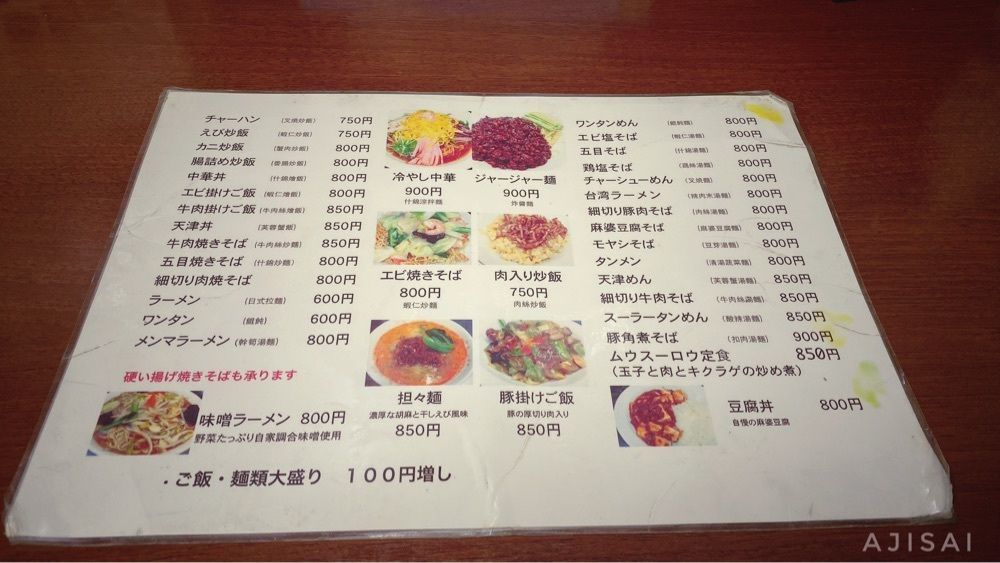 チャーハン (叉焼炒飯) 750円
えび炒飯 (蝦仁炒飯) 750円
カニ炒飯 (蟹肉炒飯) 800円
腸詰め炒飯 (香腸炒飯) 800円
中華丼 (什錦燴飯) 800円
エビ掛けご飯 (蝦仁燴飯) 800円
牛肉掛けご飯 (牛肉絲燴飯) 850円
天津丼 (芙蓉蟹飯) 850円
牛肉焼きそば (牛肉絲炒麺) 850円
五目焼きそば (什錦炒麺) 800円
細切り肉焼そば 800円
ラーメン (日式拉麺) 600円
ワンタン (餛飩) 600円
メンマラーメン (幹筍湯麺) 800円
硬い揚げ焼きそばも承ります
味噌ラーメン 800円
野菜たっぷり自家調合味噌使用
・ご飯・麺類大盛り 100円増し
冷やし中華
900円
什錦涼拌麺
ジャージャー麺
900円
炸醤麺
エビ焼きそば
800円
蝦仁炒麺
肉入り炒飯
750円
肉絲炒飯
担々麺
濃厚な胡麻と干しえび風味
850円
豚掛けご飯
豚の厚切り肉入り
850円
ワンタンめん (餛飩麺) 800円
エビ塩そば (蝦仁湯麺) 800円
五目そば (什錦湯麺) 800円
鶏塩そば (鶏絲湯麺) 800円
チャーシューめん (叉焼麺) 800円
台湾ラーメン (辣肉末湯麺) 800円
細切り豚肉そば (肉絲湯麺) 800円
麻婆豆腐そば (麻婆豆腐麺) 800円
モヤシそば (豆芽湯麺) 800円
タンメン (清湯蔬菜麺) 800円
天津めん (芙蓉蟹湯麺) 850円
細切り牛肉そば (牛肉絲湯麺) 850円
スーラータンめん (酸辣湯麺) 850円
豚角煮そば (扣肉湯麺) 900円
ムウスーロウ定食 850円
(玉子と肉とキクラゲの炒め煮)
豆腐丼 800円
自慢の麻婆豆腐
AJISAI